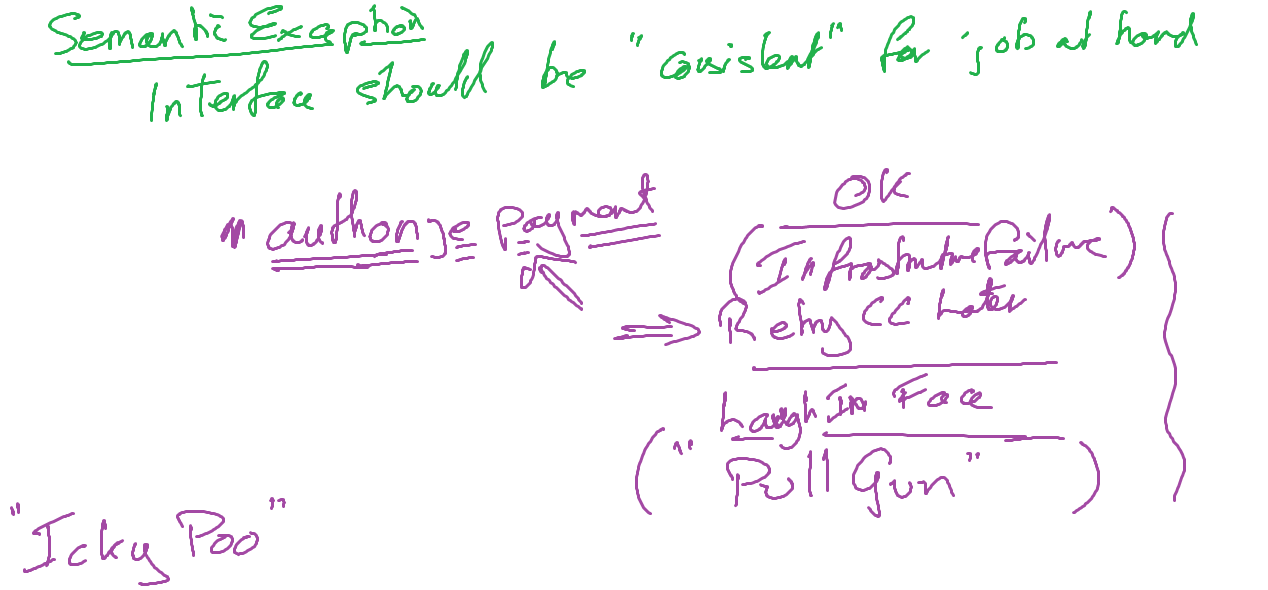 Semantic Exception
Interface should be "consistent" for job at hand
OK
authorize payment
(Infrastructure Failure)
Retry CC Later
Laugh In Face
("Pull Gun")
"Icky Poo"